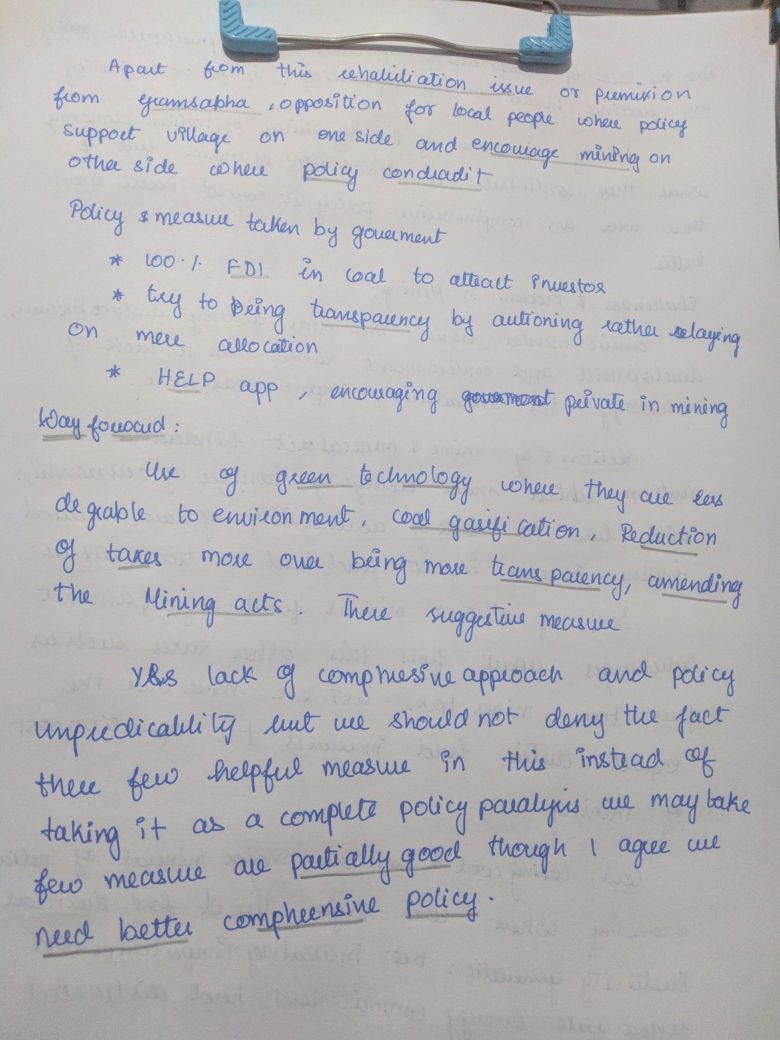 Apart from this rehabiliation issue or premission
from gramsabha , opposition for local people where policy
support village on one side and encourage mining on
other side where policy condradit
Policy & measure taken by goverment
* 100 % FDI in coal to attract investor
* try to being transparency by autioning rather relaying
on mere allocation
* HELP app , encouraging private in mining
Way forward :
Use of green technology where they are less
degrable to environment, coal gasification, Reduction
of taxes more over being more transparency, amending
the Mining acts . There suggestive measure
Yes lack of comphresive approach and policy
unpredicability but we should not deny the fact
there few helpful measure in this instead of
taking it as a complete policy paralysis we may take
few measure are partially good though I agree we
need better compheensive policy.